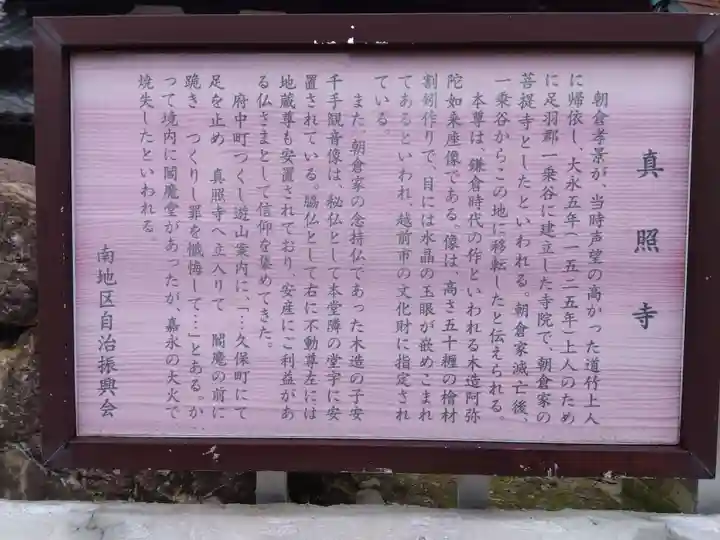 真照寺
朝倉孝景が、当時声望の高かった道竹上人
に帰依し、大永五年(一五二五年)上人のため
に足羽郡一乗谷に建立した寺院で、朝倉家の
菩提寺としたといわれる。朝倉家滅亡後、
一乗谷からこの地に移転したと伝えられる。
本尊は、鎌倉時代の作といわれる木造阿弥
陀如来座像である。像は、高さ五十糎の檜材
割矧作りで、目には水晶の玉眼が嵌めこまれ
てあるといわれ、越前市の文化財に指定され
ている。
また、朝倉家の念持仏であった木造の子安
千手観音像は、秘仏として本堂隣の堂宇に安
置されている。脇仏として右に不動尊左には
地蔵尊も安置されており、安産にご利益があ
る仏さまとして信仰を集めてきた。
府中町つくし遊山案内に、「…久保町にて
足を止め 真照寺へ立入りて 閻魔の前に
跪き つくりし罪を懺悔して…」とある。か
って境内に閻魔堂があったが 嘉永の大火で
焼失したといわれる
南地区自治振興会